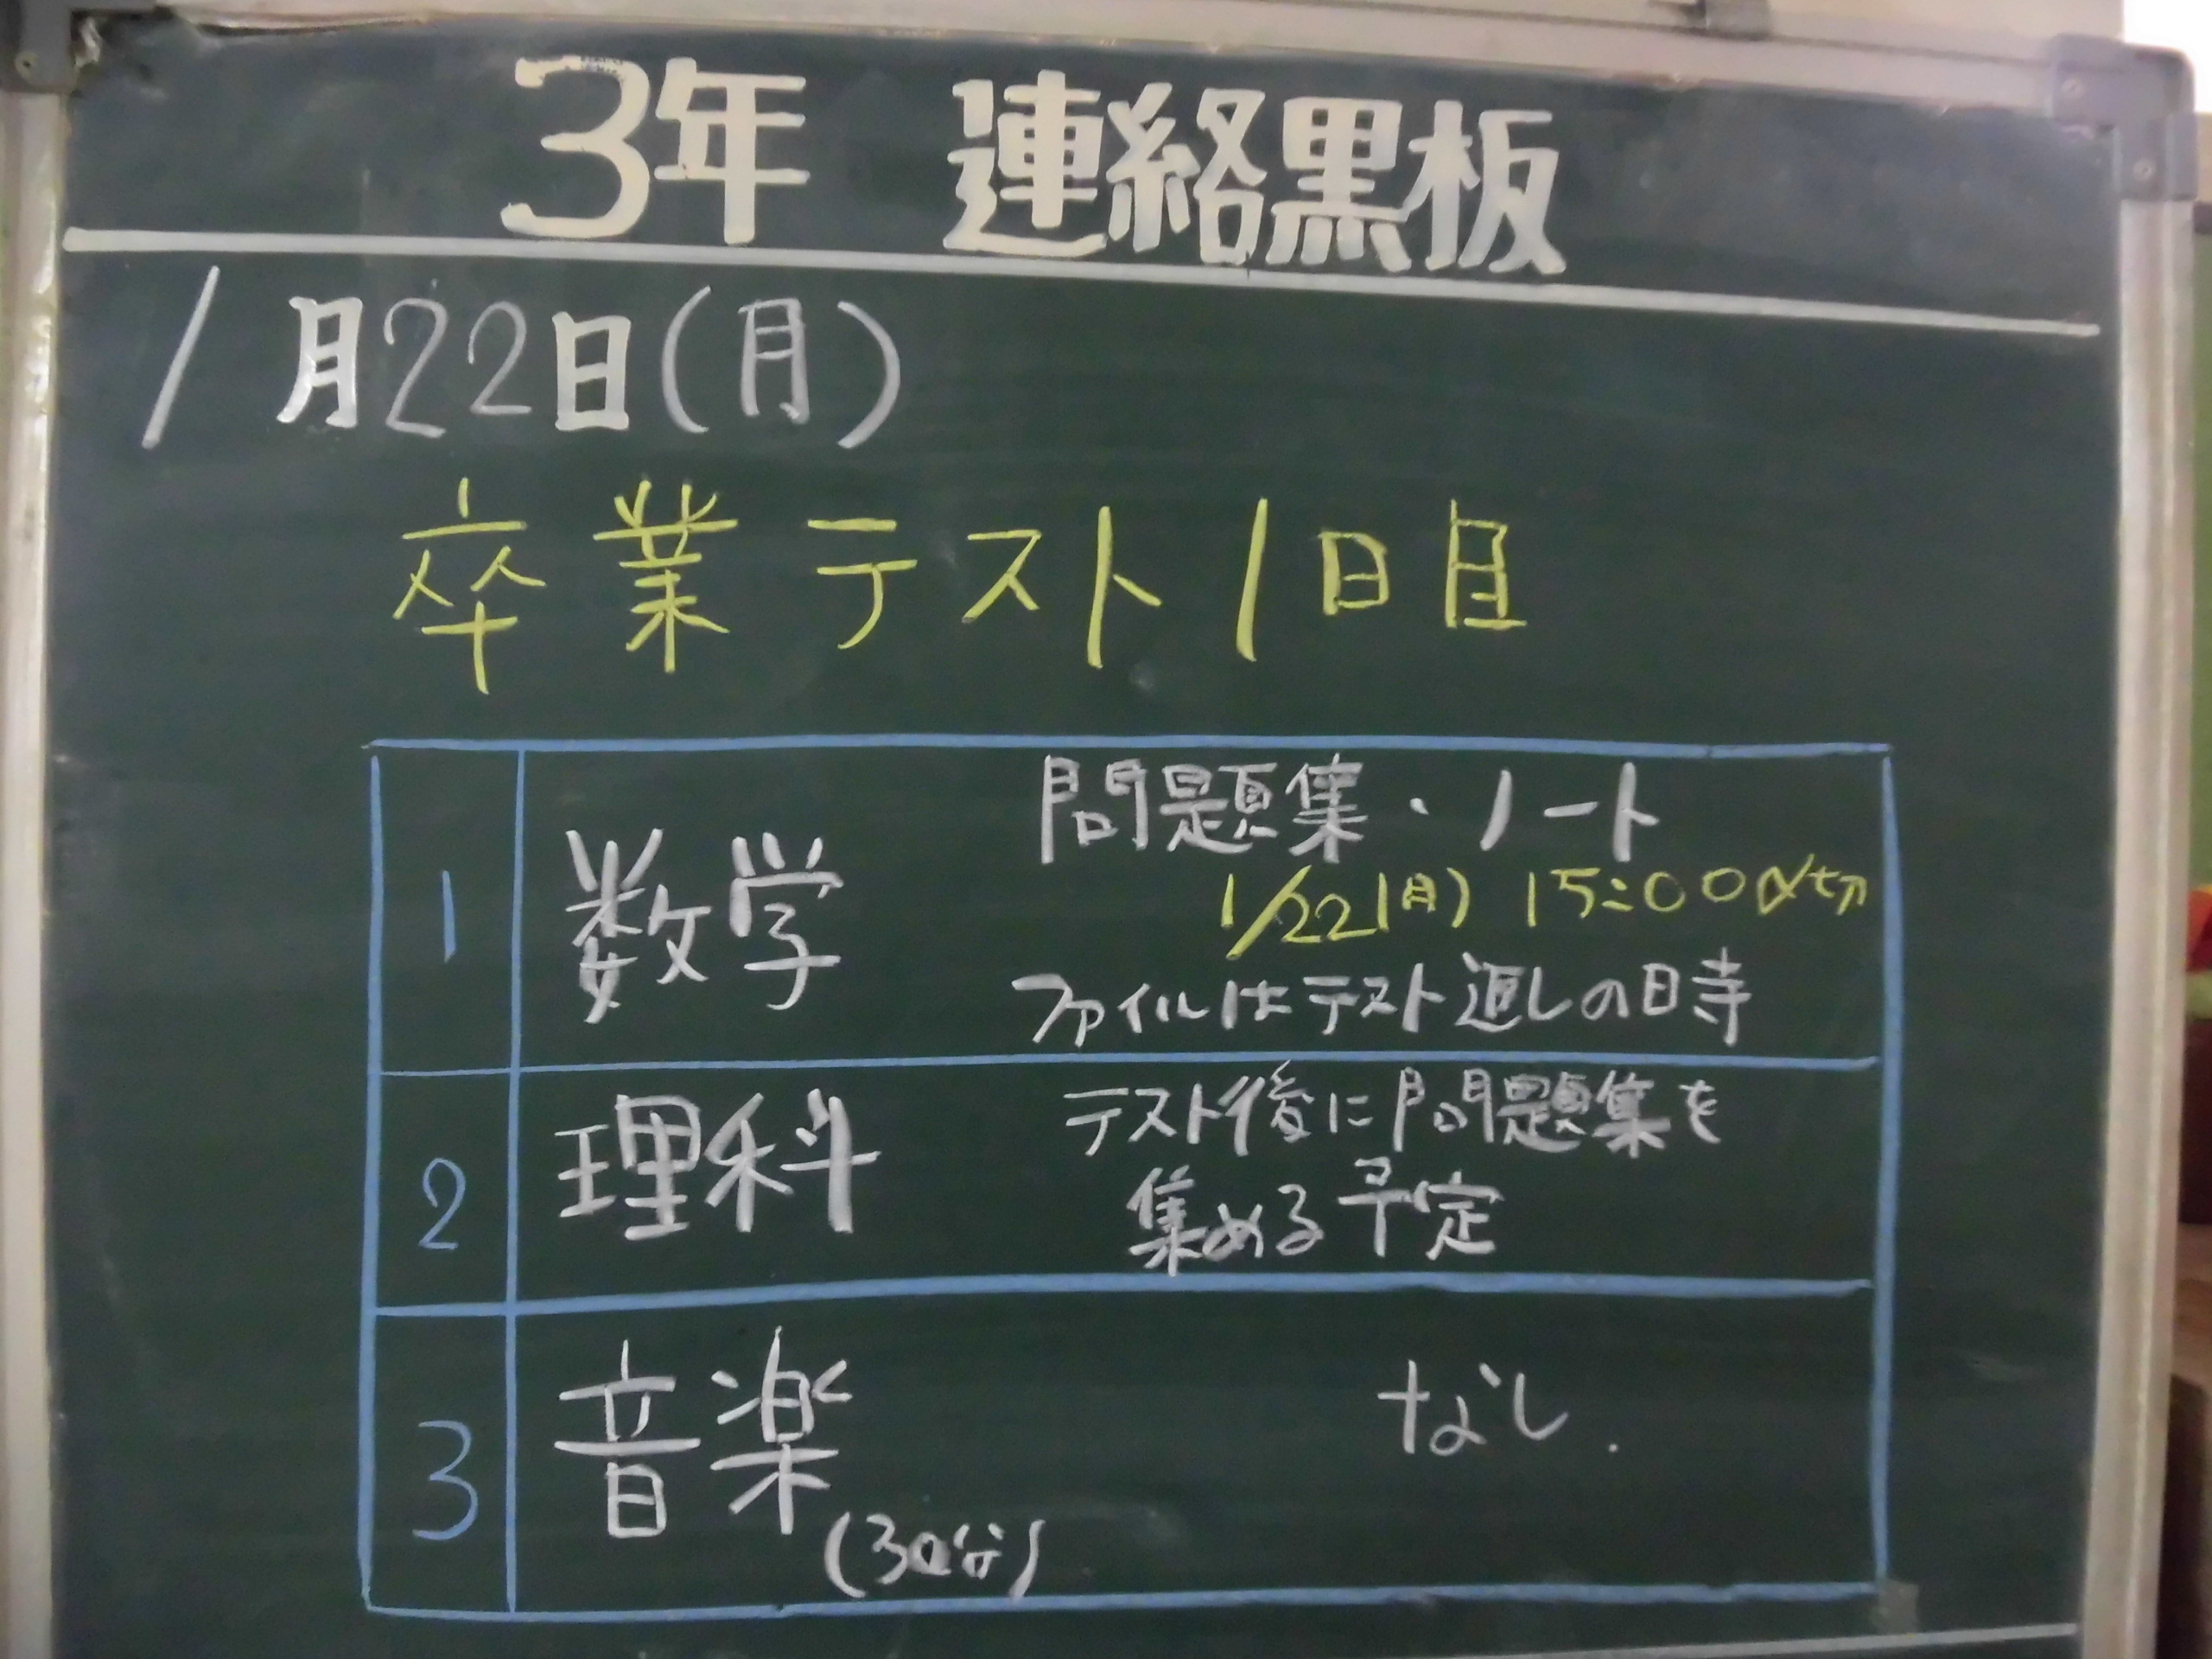 3年 連絡黒板
1月22日(月)
卒業テスト1日目
1 数学 問題集・ノート
1/22(月) 15:00〆切
ファイルはテスト返しの時
2 理科 テスト後に問題集を
集める予定
3 音楽 なし.
(30分)